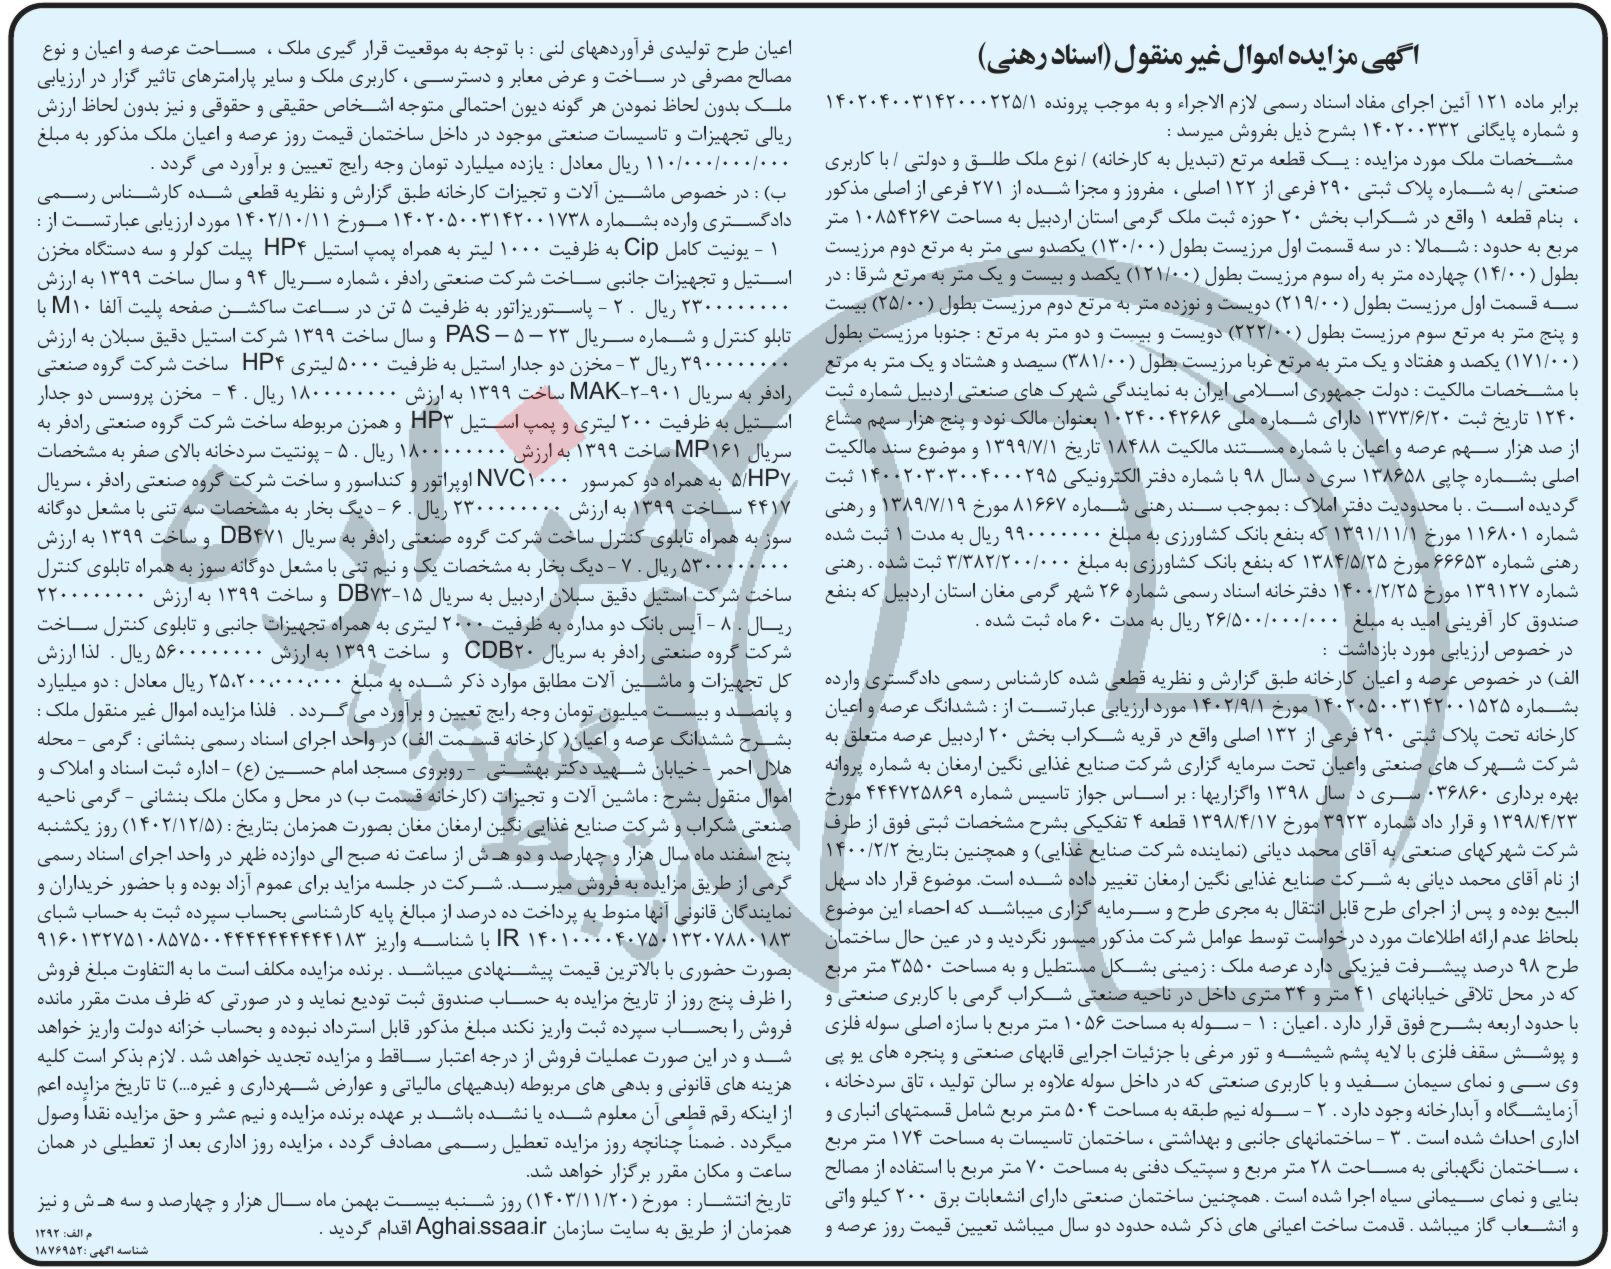 آگهی مزایده اموال غیر منقول (اسناد رهنی)
برابر ماده ۱۲۱ آئین اجرای مفاد اسناد رسمی لازم الاجراء و به موجب پرونده ۱۴۰۲۰۴۰۰۳۱۴۲۰۰۰۲۲۵/۱
و شماره پایگانی ۱۴۰۲۰۰۳۳۲ بشرح ذیل بفروش میرسد :
مشخصات ملک مورد مزایده : یک قطعه مرتع (تبدیل به کارخانه) / نوع ملک طلق و دولتی / با کاربری
صنعتی / به شماره پلاک ثبتی ۲۹۰ فرعی از ۱۲۲ اصلی ، مفروز و مجزا شده از ۲۷۱ فرعی از اصلی مذکور
، بنام قطعه ۱ واقع در شکراب بخش ۲۰ حوزه ثبت ملک گرمی استان اردبیل به مساحت ۱۰۸۵۴۲۶۷ متر
مربع به حدود : شمالا : در سه قسمت اول مرزیست بطول (۱۳۰/۰۰) یکصدو سی متر به مرتع دوم مرزیست
بطول (۱۴/۰۰) چهارده متر به راه سوم مرزیست بطول (۱۲۱/۰۰) یکصد و بیست و یک متر به مرتع شرقا : در
سه قسمت اول مرزیست بطول (۲۱۹/۰۰) دویست و نوزده متر به مرتع دوم مرزیست بطول (۲۵/۰۰) بیست
و پنج متر به مرتع سوم مرزیست بطول (۲۲۲/۰۰) دویست و بیست و دو متر به مرتع : جنوبا مرزیست بطول
(۱۷۱/۰۰) یکصد و هفتاد و یک متر به مرتع غربا مرزیست بطول (۳۸۱/۰۰) سیصد و هشتاد و یک متر به مرتع
با مشخصات مالکیت : دولت جمهوری اسلامی ایران به نمایندگی شهرک های صنعتی اردبیل شماره ثبت
۱۲۴۰ تاریخ ثبت ۱۳۷۳/۶/۲۰ دارای شماره ملی ۱۰۲۴۰۰۴۲۶۸۶ بعنوان مالک نود و پنج هزار سهم مشاع
از صد هزار سهم عرصه و اعیان با شماره مستند مالکیت ۱۸۴۸۸ تاریخ ۱۳۹۹/۷/۱ و موضوع سند مالکیت
اصلی بشماره چاپی ۱۳۸۶۵۸ سری د سال ۹۸ با شماره دفتر الکترونیکی ۱۴۰۰۲۰۳۰۳۰۰۴۰۰۰۲۹۵ ثبت
گردیده است . با محدودیت دفتر املاک : بموجب سند رهنی شماره ۸۱۶۶۷ مورخ ۱۳۸۹/۷/۱۹ و رهنی
شماره ۱۱۶۸۰۱ مورخ ۱۳۹۱/۱۱/۱ که بنفع بانک کشاورزی به مبلغ ۹۹۰۰۰۰۰۰۰۰ ریال به مدت ۱ ثبت شده
رهنی شماره ۶۶۶۵۳ مورخ ۱۳۸۴/۵/۲۵ که بنفع بانک کشاورزی به مبلغ ۳/۳۸۲/۲۰۰/۰۰۰ ثبت شده . رهنی
شماره ۱۳۹۱۲۷ مورخ ۱۴۰۰/۲/۲۵ دفترخانه اسناد رسمی شماره ۲۶ شهر گرمی مغان استان اردبیل که بنفع
صندوق کار آفرینی امید به مبلغ ۲۶/۵۰۰/۰۰۰/۰۰۰ ریال به مدت ۶۰ ماه ثبت شده .
در خصوص ارزیابی مورد بازداشت :
الف) در خصوص عرصه و اعیان کارخانه طبق گزارش و نظریه قطعی شده کارشناس رسمی دادگستری وارده
بشماره ۱۴۰۲۰۵۰۰۳۱۴۲۰۰۱۵۲۵ مورخ ۱۴۰۲/۹/۱ مورد ارزیابی عبارتست از : ششدانگ عرصه و اعیان
کارخانه تحت پلاک ثبتی ۲۹۰ فرعی از ۱۳۲ اصلی واقع در قریه شکراب بخش ۲۰ اردبیل عرصه متعلق به
شرکت شهرک های صنعتی واعیان تحت سرمایه گزاری شرکت صنایع غذایی نگین ارمغان به شماره پروانه
بهره برداری ۰۳۶۸۶۰ سری د سال ۱۳۹۸ واگزاریها : بر اساس جواز تاسیس شماره ۴۴۴۷۲۵۸۶۹ مورخ
۱۳۹۸/۴/۲۳ و قرار داد شماره ۳۹۲۳ مورخ ۱۳۹۸/۴/۱۷ قطعه ۴ تفکیکی بشرح مشخصات ثبتی فوق از طرف
شرکت شهرکهای صنعتی به آقای محمد دیانی (نماینده شرکت صنایع غذایی) و همچنین بتاریخ ۱۴۰۰/۲/۲
از نام آقای محمد دیانی به شرکت صنایع غذایی نگین ارمغان تغییر داده شده است. موضوع قرار داد سهل
البیع بوده و پس از اجرای طرح قابل انتقال به مجری طرح و سرمایه گزاری میباشد که احصاء این موضوع
بلحاظ عدم ارائه اطلاعات مورد درخواست توسط عوامل شرکت مذکور میسور نگردید و در عین حال ساختمان
طرح ۹۸ درصد پیشرفت فیزیکی دارد عرصه ملک : زمینی بشکل مستطیل و به مساحت ۳۵۵۰ متر مربع
که در محل تلاقی خیابانهای ۴۱ متر و ۳۴ متری داخل در ناحیه صنعتی شکراب گرمی با کاربری صنعتی و
با حدود اربعه بشرح فوق قرار دارد . اعیان : ۱ - سوله به مساحت ۱۰۵۶ متر مربع با سازه اصلی سوله فلزی
و پوشش سقف فلزی با لایه پشم شیشه و تور مرغی با جزئیات اجرایی قابهای صنعتی و پنجره های یو پی
وی سی و نمای سیمان سفید و با کاربری صنعتی که در داخل سوله علاوه بر سالن تولید ، تاق سردخانه ،
آزمایشگاه و آبدارخانه وجود دارد . ۲ - سوله نیم طبقه به مساحت ۵۰۴ متر مربع شامل قسمتهای انباری و
اداری احداث شده است . ۳ - ساختمانهای جانبی و بهداشتی ، ساختمان تاسیسات به مساحت ۱۷۴ متر مربع
، ساختمان نگهبانی به مساحت ۲۸ متر مربع و سپتیک دفنی به مساحت ۷۰ متر مربع با استفاده از مصالح
بنایی و نمای سیمانی سیاه اجرا شده است . همچنین ساختمان صنعتی دارای انشعابات برق ۲۰۰ کیلو واتی
و انشعاب گاز میباشد . قدمت ساخت اعیانی های ذکر شده حدود دو سال میباشد تعیین قیمت روز عرصه و
اعیان طرح تولیدی فرآوردههای لنی : با توجه به موقعیت قرار گیری ملک ، مساحت عرصه و اعیان و نوع
مصالح مصرفی در ساخت و عرض معابر و دسترسی ، کاربری ملک و سایر پارامترهای تاثیر گزار در ارزیابی
ملک بدون لحاظ نمودن هر گونه دیون احتمالی متوجه اشخاص حقیقی و حقوقی و نیز بدون لحاظ ارزش
ریالی تجهیزات و تاسیسات صنعتی موجود در داخل ساختمان قیمت روز عرصه و اعیان ملک مذکور به مبلغ
۱۱۰/۰۰۰/۰۰۰/۰۰۰ ریال معادل : یازده میلیارد تومان وجه رایج تعیین و برآورد می گردد .
ب) : در خصوص ماشین آلات و تجیزات کارخانه طبق گزارش و نظریه قطعی شده کارشناس رسمی
دادگستری وارده بشماره ۱۴۰۲۰۵۰۰۳۱۴۲۰۰۱۷۳۸ مورخ ۱۴۰۲/۱۰/۱۱ مورد ارزیابی عبارتست از :
۱ - یونیت کامل Cip به ظرفیت ۱۰۰۰ لیتر به همراه پمپ استیل HP۴ پیلت کولر و سه دستگاه مخزن
استیل و تجهیزات جانبی ساخت شرکت صنعتی رادفر ، شماره سریال ۹۴ و سال ساخت ۱۳۹۹ به ارزش
۲۳۰۰۰۰۰۰۰۰ ریال . ۲ - پاستوریزاتور به ظرفیت ۵ تن در ساعت ساکشن صفحه پلیت آلفا M۱۰ با
تابلو کنترل و شماره سریال ۲۳ – ۵ – PAS و سال ساخت ۱۳۹۹ شرکت استیل دقیق سبلان به ارزش
۳۹۰۰۰۰۰۰۰۰ ریال ۳ - مخزن دو جدار استیل به ظرفیت ۵۰۰۰ لیتری HP۴ ساخت شرکت گروه صنعتی
رادفر به سریال MAK-۲-۹۰۱ ساخت ۱۳۹۹ به ارزش ۱۸۰۰۰۰۰۰۰۰ ریال . ۴ - مخزن پروسس دو جدار
استیل به ظرفیت ۲۰۰ لیتری و پمپ استیل HP۳ و همزن مربوطه ساخت شرکت گروه صنعتی رادفر به
سریال MP۱۶۱ ساخت ۱۳۹۹ به ارزش ۱۸۰۰۰۰۰۰۰۰ ریال . ۵ - پونتیت سردخانه بالای صفر به مشخصات
۵/HP۷ به همراه دو کمرسور NVC۱۰۰۰ اوپراتور و کنداسور و ساخت شرکت گروه صنعتی رادفر ، سریال
۴۴۱۷ ساخت ۱۳۹۹ به ارزش ۲۳۰۰۰۰۰۰۰۰ ریال . ۶ - دیگ بخار به مشخصات سه تنی با مشعل دوگانه
سوز به همراه تابلوی کنترل ساخت شرکت گروه صنعتی رادفر به سریال DB۴۷۱ و ساخت ۱۳۹۹ به ارزش
۵۳۰۰۰۰۰۰۰۰ ریال . ۷ - دیگ بخار به مشخصات یک و نیم تنی با مشعل دوگانه سوز به همراه تابلوی کنترل
ساخت شرکت استیل دقیق سبلان اردبیل به سریال DB۷۳-۱۵ و ساخت ۱۳۹۹ به ارزش ۲۲۰۰۰۰۰۰۰۰
ریال . ۸ - آیس بانک دو مداره به ظرفیت ۲۰۰۰ لیتری به همراه تجهیزات جانبی و تابلوی کنترل ساخت
شرکت گروه صنعتی رادفر به سریال CDB۲۰ و ساخت ۱۳۹۹ به ارزش ۵۶۰۰۰۰۰۰۰۰ ریال . لذا ارزش
کل تجهیزات و ماشین آلات مطابق موارد ذکر شده به مبلغ ۲۵،۲۰۰،۰۰۰،۰۰۰ ریال معادل : دو میلیارد
و پانصد و بیست میلیون تومان وجه رایج تعیین و برآورد می گردد . فلذا مزایده اموال غیر منقول ملک :
بشرح ششدانگ عرصه و اعیان( کارخانه قسمت الف) در واحد اجرای اسناد رسمی بنشانی : گرمی - محله
هلال احمر - خیابان شهید دکتر بهشتی - روبروی مسجد امام حسین (ع) - اداره ثبت اسناد و املاک و
اموال منقول بشرح : ماشین آلات و تجیزات (کارخانه قسمت ب) در محل و مکان ملک بنشانی - گرمی ناحیه
صنعتی شکراب و شرکت صنایع غذایی نگین ارمغان مغان بصورت همزمان بتاریخ : (۱۴۰۲/۱۲/۵) روز یکشنبه
پنج اسفند ماه سال هزار و چهارصد و دو هـ ش از ساعت نه صبح الی دوازده ظهر در واحد اجرای اسناد رسمی
گرمی از طریق مزایده به فروش میرسد. شرکت در جلسه مزاید برای عموم آزاد بوده و با حضور خریداران و
نمایندگان قانونی آنها منوط به پرداخت ده درصد از مبالغ پایه کارشناسی بحساب سپرده ثبت به حساب شبای
IR ۱۴۰۱۰۰۰۰۴۰۷۵۰۱۳۲۰۷۸۸۰۱۸۳ با شناسه واریز ۹۱۶۰۱۳۲۷۵۱۰۸۵۷۵۰۰۴۴۴۴۴۴۴۴۴۴۱۸۳
بصورت حضوری با بالاترین قیمت پیشنهادی میباشد . برنده مزایده مکلف است ما به التفاوت مبلغ فروش
را ظرف پنج روز از تاریخ مزایده به حساب صندوق ثبت تودیع نماید و در صورتی که ظرف مدت مقرر مانده
فروش را بحساب سپرده ثبت واریز نکند مبلغ مذکور قابل استرداد نبوده و بحساب خزانه دولت واریز خواهد
شد و در این صورت عملیات فروش از درجه اعتبار ساقط و مزایده تجدید خواهد شد . لازم بذکر است کلیه
هزینه های قانونی و بدهی های مربوطه (بدهیهای مالیاتی و عوارض شهرداری و غیره...) تا تاریخ مزایده اعم
از اینکه رقم قطعی آن معلوم شده یا نشده باشد بر عهده برنده مزایده و نیم عشر و حق مزایده نقداً وصول
میگردد . ضمناً چنانچه روز مزایده تعطیل رسمی مصادف گردد ، مزایده روز اداری بعد از تعطیلی در همان
ساعت و مکان مقرر برگزار خواهد شد.
تاریخ انتشار : مورخ (۱۴۰۳/۱۱/۲۰) روز شنبه بیست بهمن ماه سال هزار و چهارصد و سه هـ ش و نیز
همزمان از طریق به سایت سازمان Aghai.ssaa.ir اقدام گردید .
م الف: ۱۲۹۲
شناسه اگهی :۱۸۷۶۹۵۲
هزاره
گستران
ارتباط